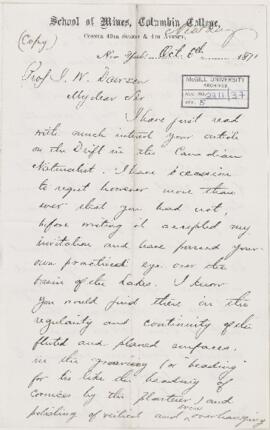 School of Mines, Columbia College,
Corner 49th Street & 4th Avenue,
(Copy)
New York, Oct. 6th 1871
McGILL UNIVERSITY
ARCHIVES
ACC. NO. 2211 37
REF. 5
Prof J. W. Dawson
My dear Sir
I have just read
with much interest your article
on the Drift in the Canadian
Naturalist. I have occasion
to regret however more than
ever that you had not,
before writing it accepted my
invitation and have passed your
own practised eye over the
basin of the Lakes. I know
you would find there in the
regularity and continuity of the
fluted and planed surfaces,
in the grooving (or "beading"
for its like the beading of
cornices by the plasterer) and
polishing of vertical and even overhanging